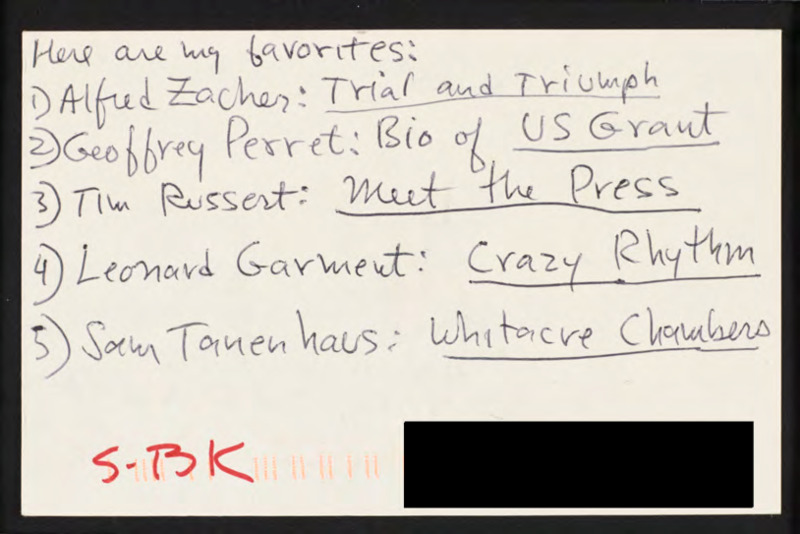 Here are my favorites:
1) Alfred Zacher: Trial and Triumph
2) Geoffrey Perret: Bio of US Grant
3) Tim Russert: Meet the Press
4) Leonard Garment: Crazy Rhythm
5) Sam Tanenhaus: Whitacre Chambers
S-BK